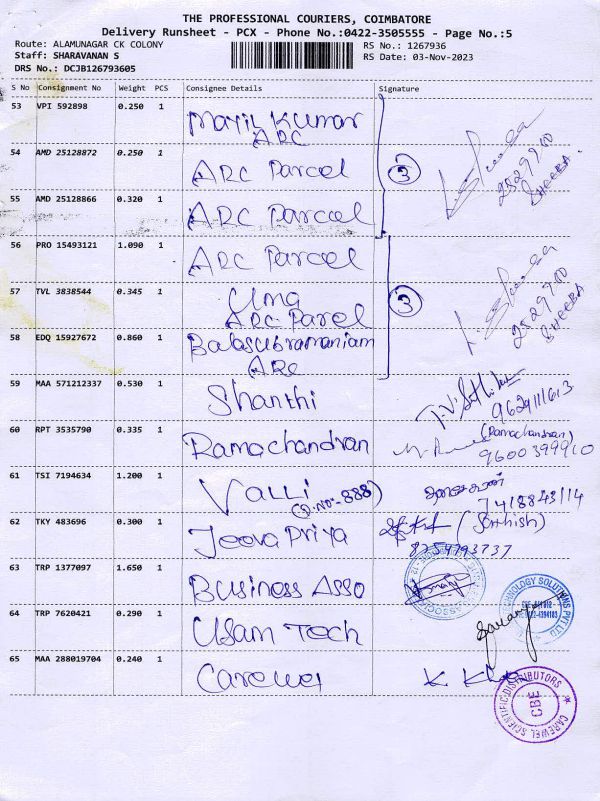 THE PROFESSIONAL COURIERS, COIMBATORE
Delivery Runsheet - PCX - Phone No.:0422-3505555 - Page No.:5
Route: ALAMUNAGAR CK COLONY
RS No.: 1267936
Staff: SHARAVANAN S
RS Date: 03-Nov-2023
DRS No.: DCJB126793605
S No Consignment No Weight PCS Consignee Details Signature
53 VPI 592898 0.250 1 Mayil Kumar
ARC
54 AMD 25128872 0.250 1 ARC Parcel 3 2529900
SHEEBA.
55 AMD 25128866 0.320 1 ARC Parcel
56 PRO 15493121 1.090 1 ARC Parcel
57 TVL 3838544 0.345 1 Uma
ARC Parcel 3 2529900
SHEEBA
58 EDQ 15927672 0.860 1 Balasubramaniam
ARC
59 MAA 571212337 0.530 1 Shanthi 9629111613
60 RPT 3535790 0.335 1 Ramachandran (Ramachandran)
9600399910
61 TSI 7194634 1.200 1 Valli
(D.No-888) 7418843114
62 TKY 483696 0.300 1 Jeeva Priya (Sathish)
8754793737
63 TRP 1377097 1.650 1 Business Asso
64 TRP 7620421 0.290 1 Usam Tech
65 MAA 288019704 0.240 1 Carewel
CAREWEL SCIENTIFIC DISTRIBUTORS
CBE